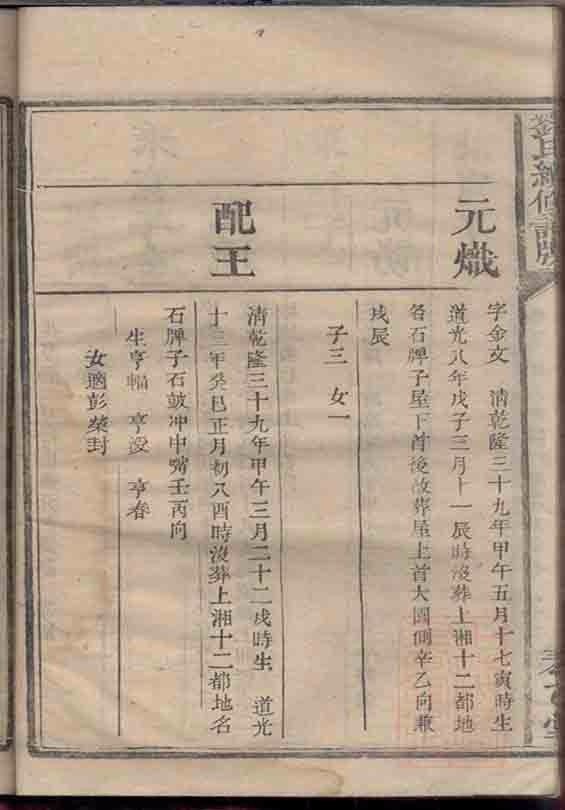 元熾
字金文 清乾隆三十九年甲午五月十七寅時生
道光八年戊子三月十一辰時沒葬上湘十二都地
名石牌子屋下首後改葬屋上首大園側辛乙向兼
戌辰
子三 女一
配王
清乾隆三十九年甲午三月二十二戌時生 道光
十三年癸巳正月初八酉時沒葬上湘十二都地名
石牌子石鼓冲中嘴壬丙向
生亨幅 亨浸 亨春
女適彭榮封